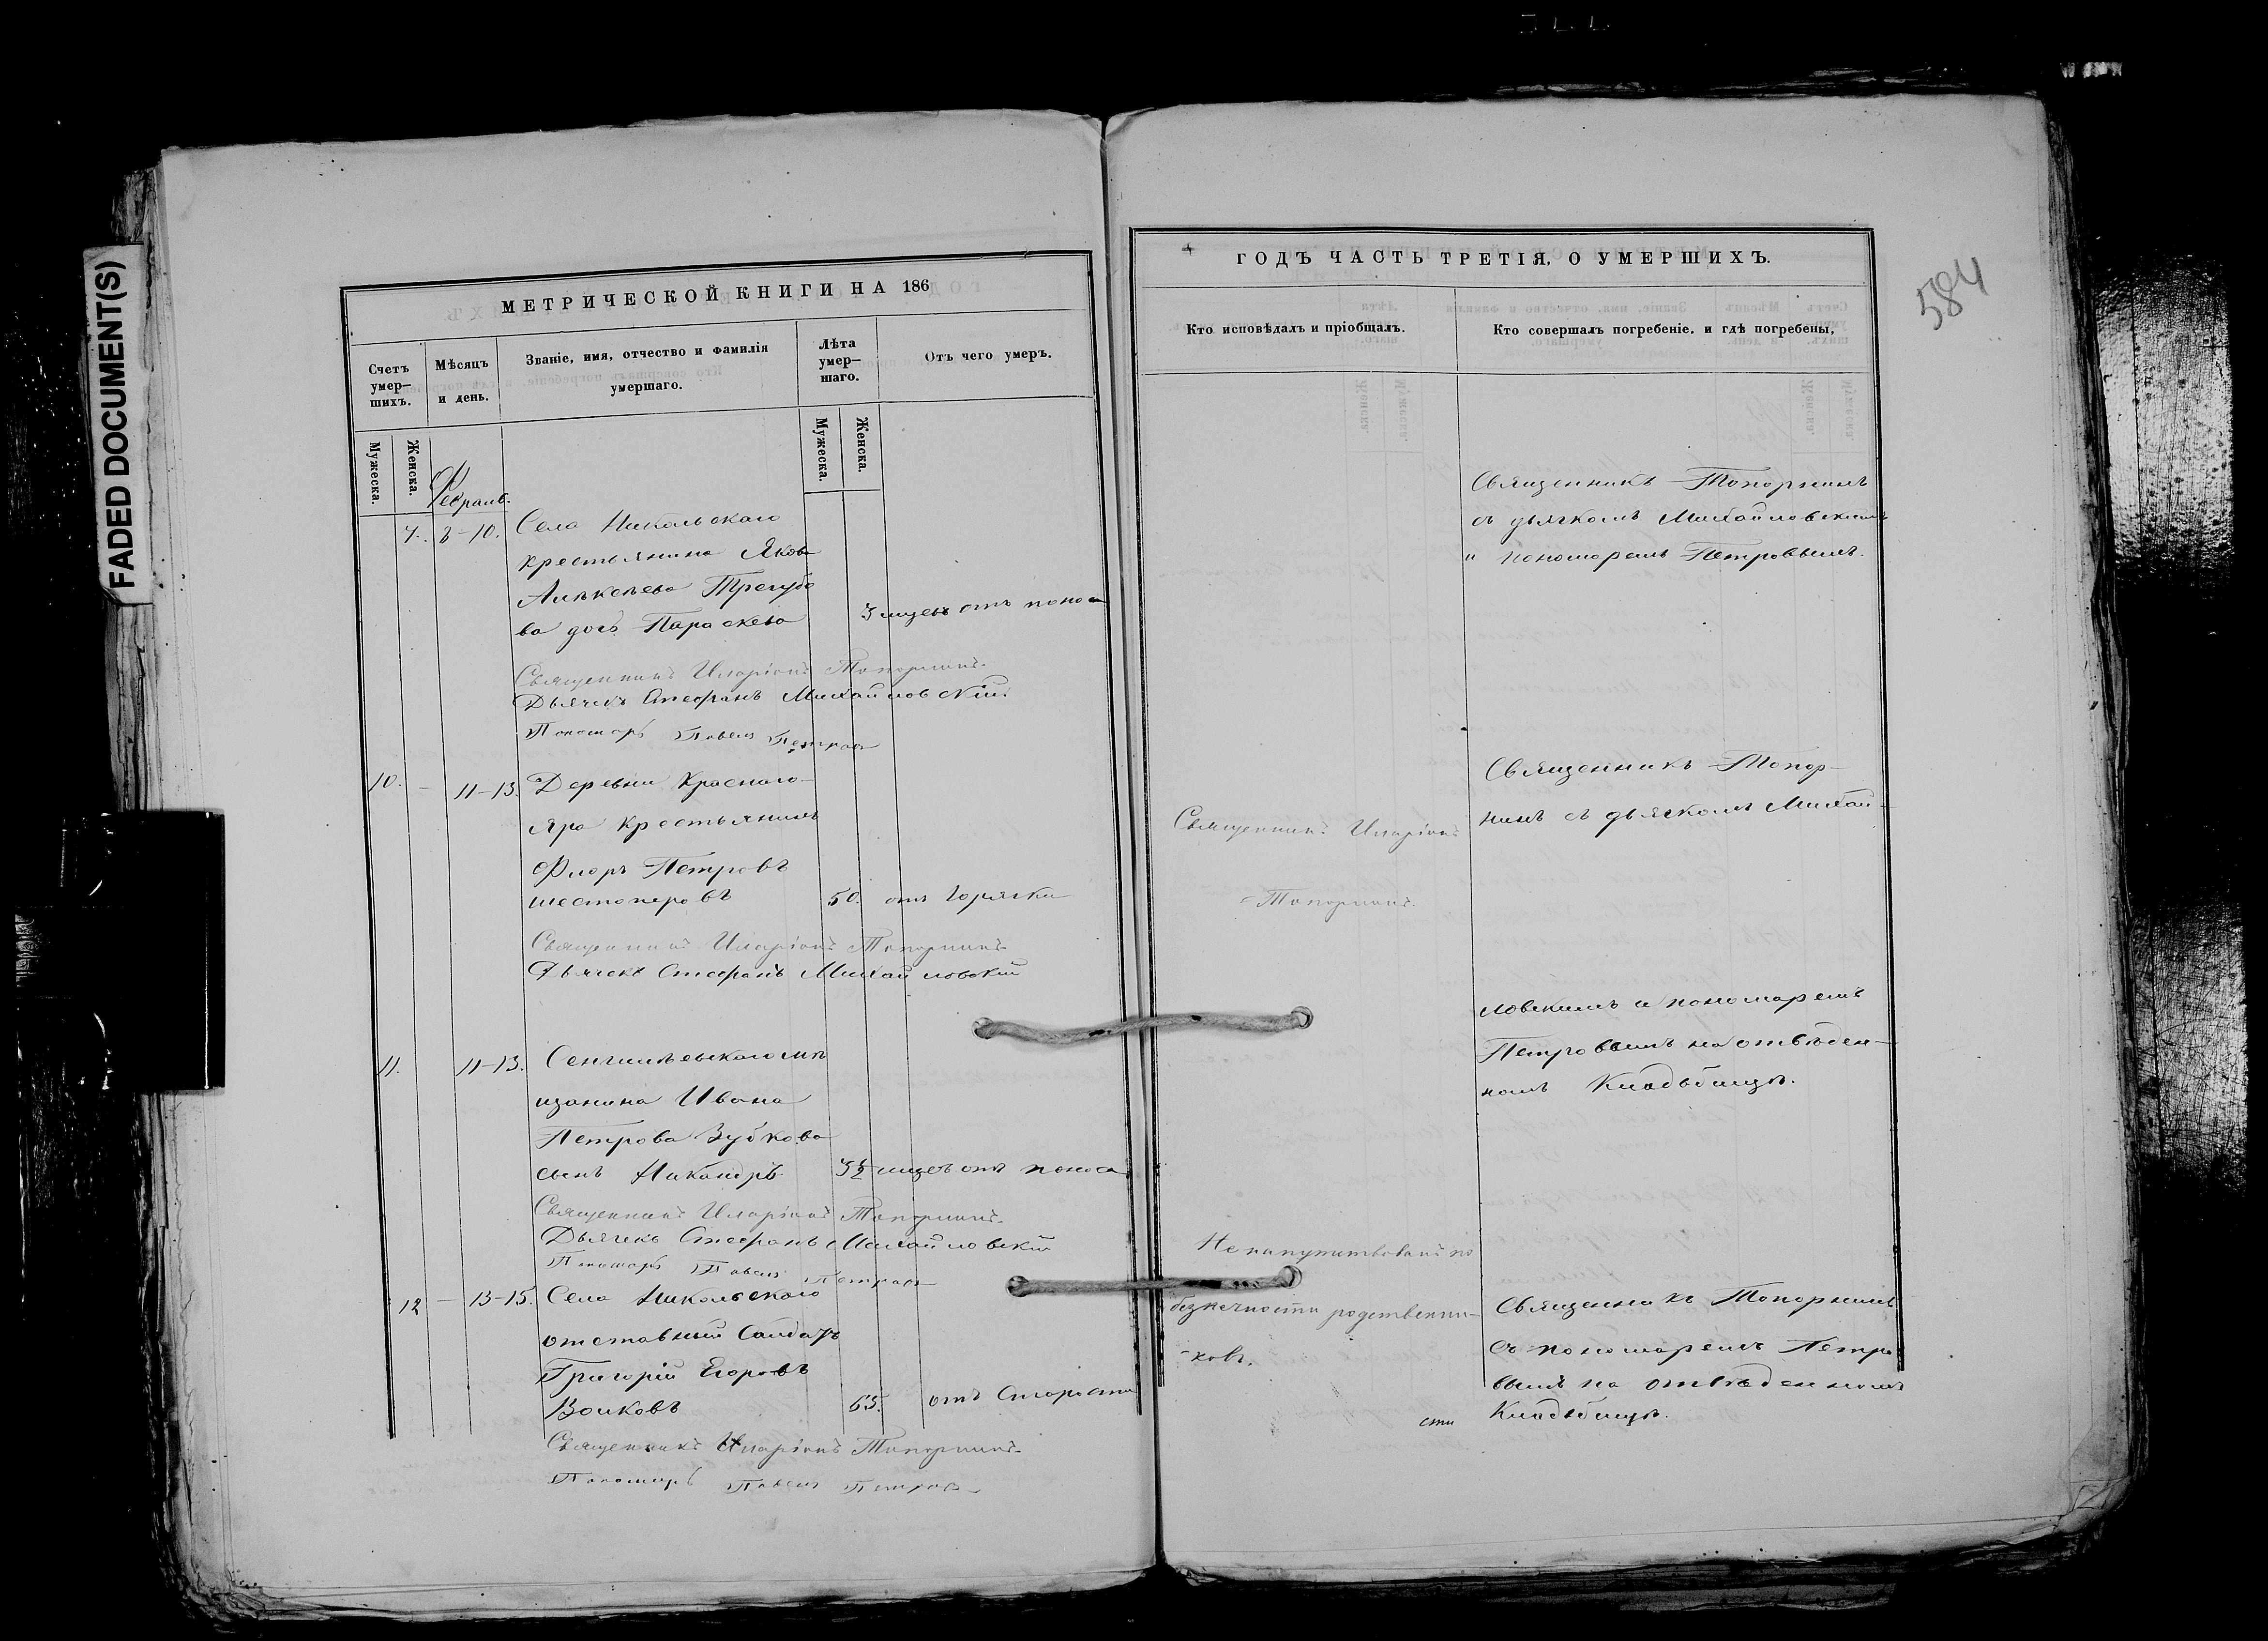 FADED DOCUMENT(S)
МЕТРИЧЕСКОЙ КНИГИ НА 186
Счетъ умер—шихъ.
Мѣсяцъ и день.
Званіе, имя, отчество и фамилія умершаго.
Лѣта умер—шаго.
Отъ чего умеръ.
Мужеска.
Женска.
Мужеска.
Женска.
Февраль.
7. 8-10. Села Никольскаго
крестьянина Якова
Алексѣева Трегубо
ва дочь Параскева 3 мцевъ отъ поноса
Священникъ Иларіонъ Топорнинъ.
Дьячекъ Стефанъ Михайловскій.
Пономарь Павелъ Петровъ
10. - 11-13. Деревни Краснаго
Яра крестьянинъ
Флоръ Петровъ
Шестоперовъ 50. отъ Горячки
Священникъ Иларіонъ Топорнинъ.
Дьячекъ Стефанъ Михайловскій
11. 11-13. Сенгилѣевскаго мѣ
щанина Ивана
Петрова Зубкова
сынъ Никандръ 3½ мцевъ отъ поноса
Священникъ Иларіонъ Топорнинъ.
Дьячекъ Стефанъ Михайловскій
Пономарь Павелъ Петровъ
12 - 13-15. Села Никольскаго
отставный Солдатъ
Григорій Егоровъ
Волковъ 65. отъ Старости
Священникъ Иларіонъ Топорнинъ.
Пономарь Павелъ Петровъ
584
ГОДЪ ЧАСТЬ ТРЕТІЯ, О УМЕРШИХЪ.
Кто исповѣдалъ и пріобщалъ.
Кто совершалъ погребеніе, и гдѣ погребены,
Священникъ Топорнинъ
съ дьячкомъ Михайловскимъ
и пономаремъ Петровымъ.
Священникъ Иларіонъ
Топорнинъ.
Священникъ Топор-
нинъ съ дьячкомъ Михай-
ловскимъ и пономаремъ
Петровымъ на отвѣден-
номъ Кладбищѣ.
Не напутствованъ по
безпечности родственни-
-ковъ.
Священникъ Топорнинъ
съ пономаремъ Петро
вымъ на отвѣденномъ
Кладбищѣ.
сти